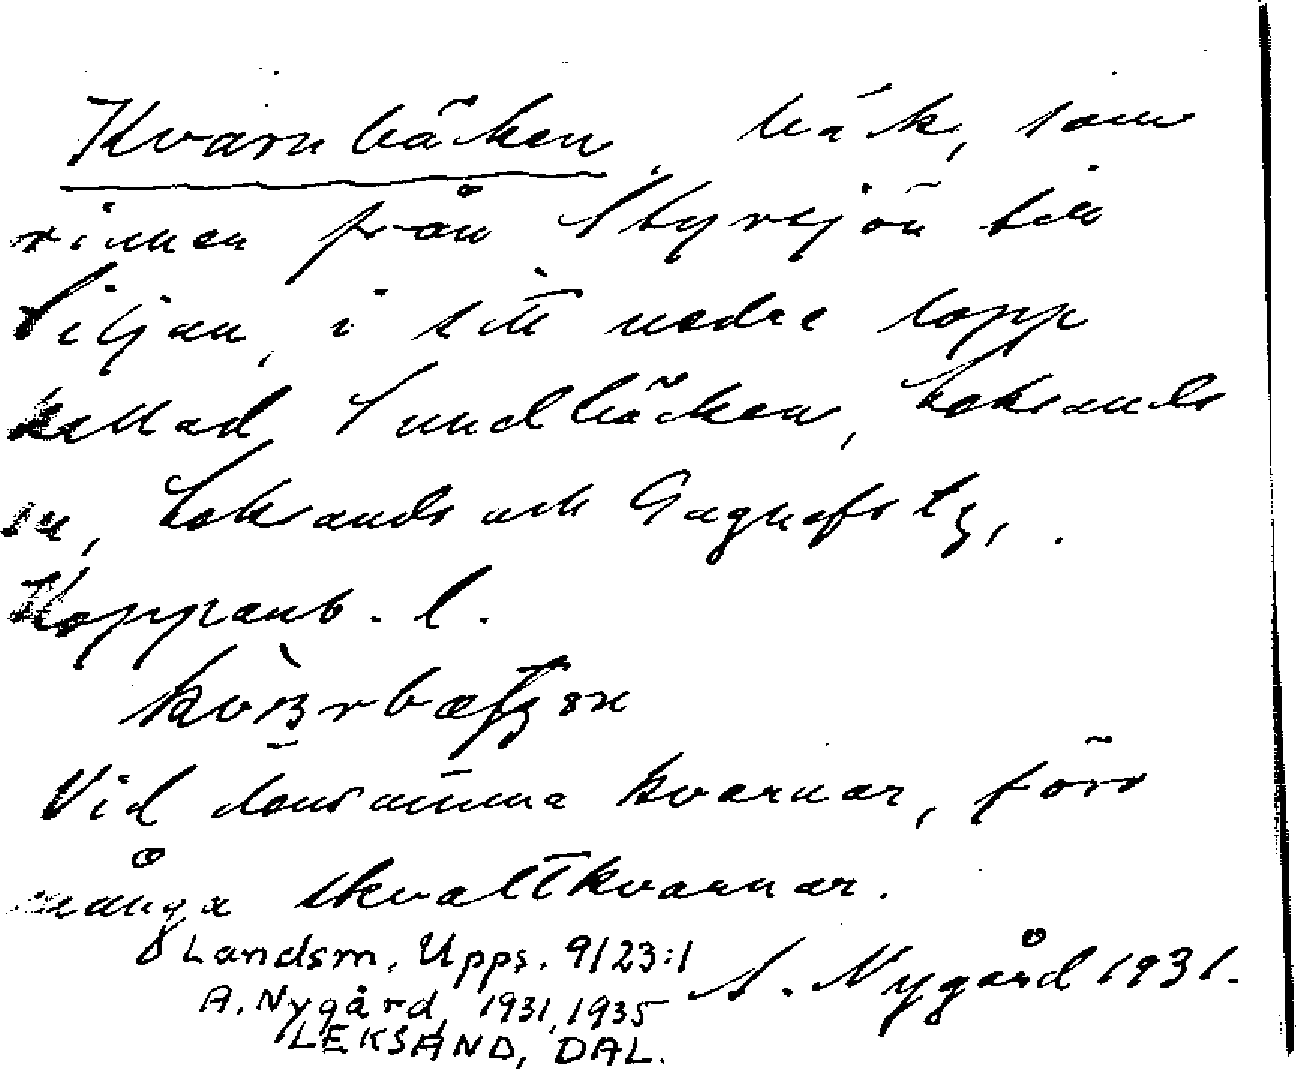 Kvarnbäcken, bäck, som
rinner från Styrsjön till
Siljan, i sitt nedre lopp
kallad Sundbäcken, Leksands
sn, Leksands och Gagnefs tg,.
Kopparb. l.
Vid densamma kvarnar, förr
många skvaltkvarnar.
Landsm. Upps. 9123:1
A. Nygård 1931.
A. Nygård, 1931, 1935
LEKSAND, DAL.